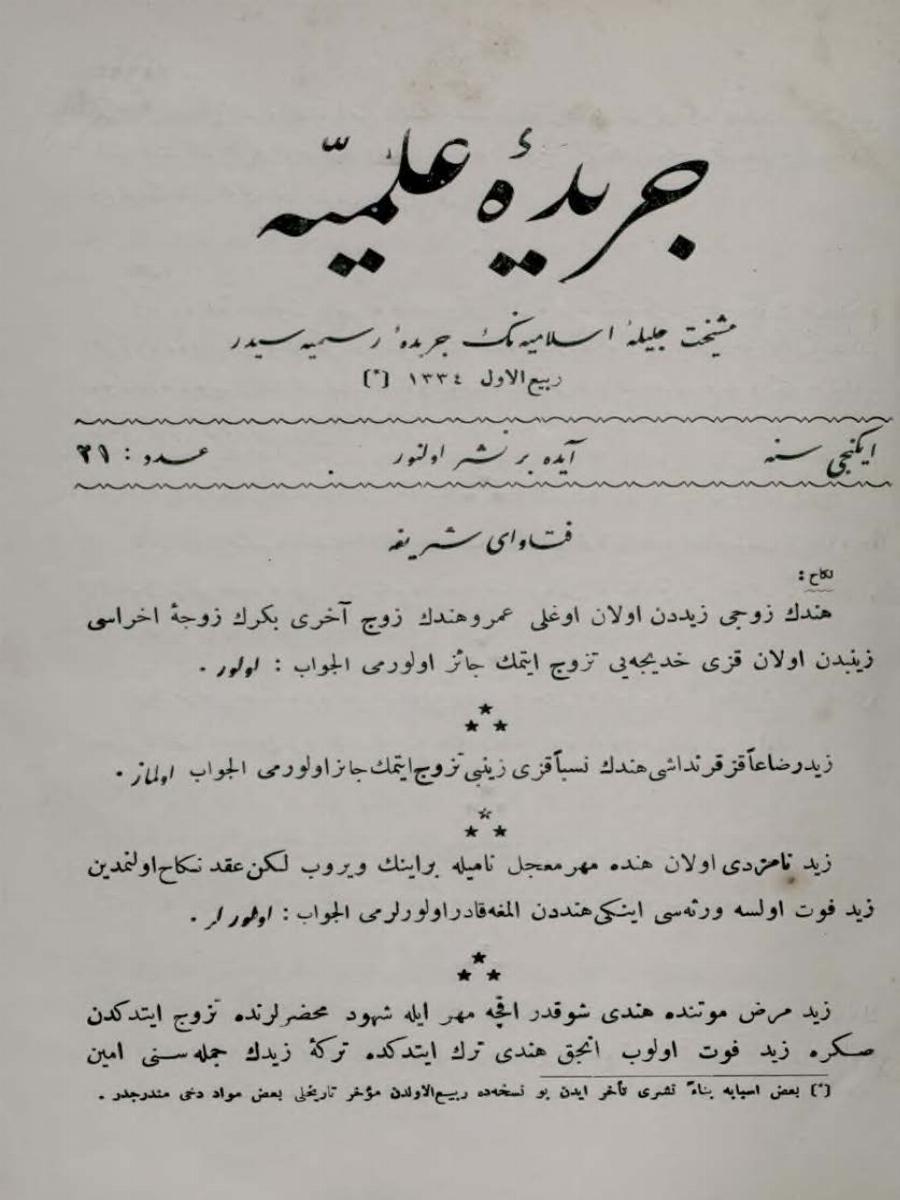 جريدۀ علميّه
مشيخت جليلۀ اسلاميه‌نك جريدۀ رسميه سيدر
ربيع الاول ١٣٣٤ (*)
ايكنجى سنه آيده بر نشر اولنور عدد : ٢١
فتاواى شريفه
نكاح :
هندك زوجى زيددن اولان اوغلى عمرو هندك زوج آخرى بكرك زوجۀ اخراسى
زينبدن اولان قزى خديجه‌يى تزوج ايتمك جائز اولورمى الجواب : اولور .
زيد رضاعاً قز قرنداشى هندك نسباً قزى زينبى تزوج ايتمك جائز اولورمى الجواب اولماز .
زيد نامزدى اولان هنده مهر معجل ناميله براينك ويروب لكن عقد نكاح اولنمدين
زيد فوت اولسه ورثه‌سى اينكى هنددن المغه قادر اولورلرمى الجواب : اولورلر .
زيد مرض موتنده هندى شوقدر اقچه مهر ايله شهود محضرلرنده تزوج ايتدكدن
صكره زيد فوت اولوب انجق هندى ترك ايتدكده تركۀ زيدك جمله‌سنى امين
(*) بعض اسبابه بناءً نشرى تأخر ايدن بو نسخه‌ده ربيع‌الاولدن مؤخر تاريخلى بعض مواد دخى مندرجدر .